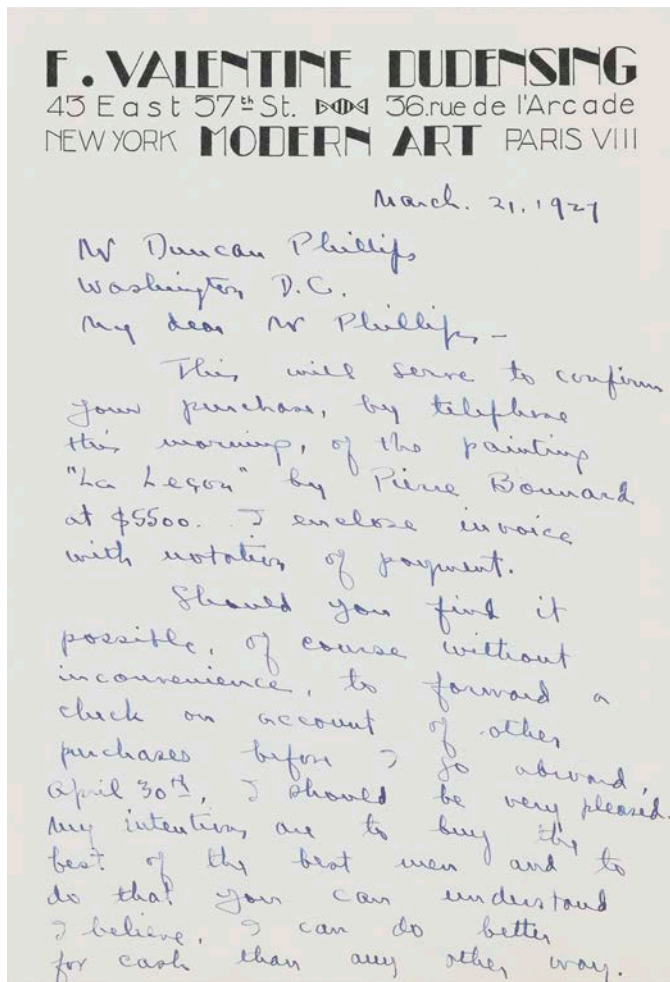 F. VALENTINE DUDENSING
43 East 57th St. 36.rue de l'Arcade
NEW YORK MODERN ART PARIS VIII
March. 21, 1927
Mr Duncan Phillips
Washington D.C.
My dear Mr Phillips –
This will serve to confirm
your purchase, by telephone
this morning, of the painting
"La Leçon" by Pierre Bonnard
at $5500. I enclose invoice
with notation of payment.
Should you find it
possible, of course without
inconvenience, to forward a
check on account of other
purchases before I go abroad,
April 30th, I should be very pleased.
My intentions are to buy the
best of the best men and to
do that you can understand
I believe, I can do better
for cash than any other way.